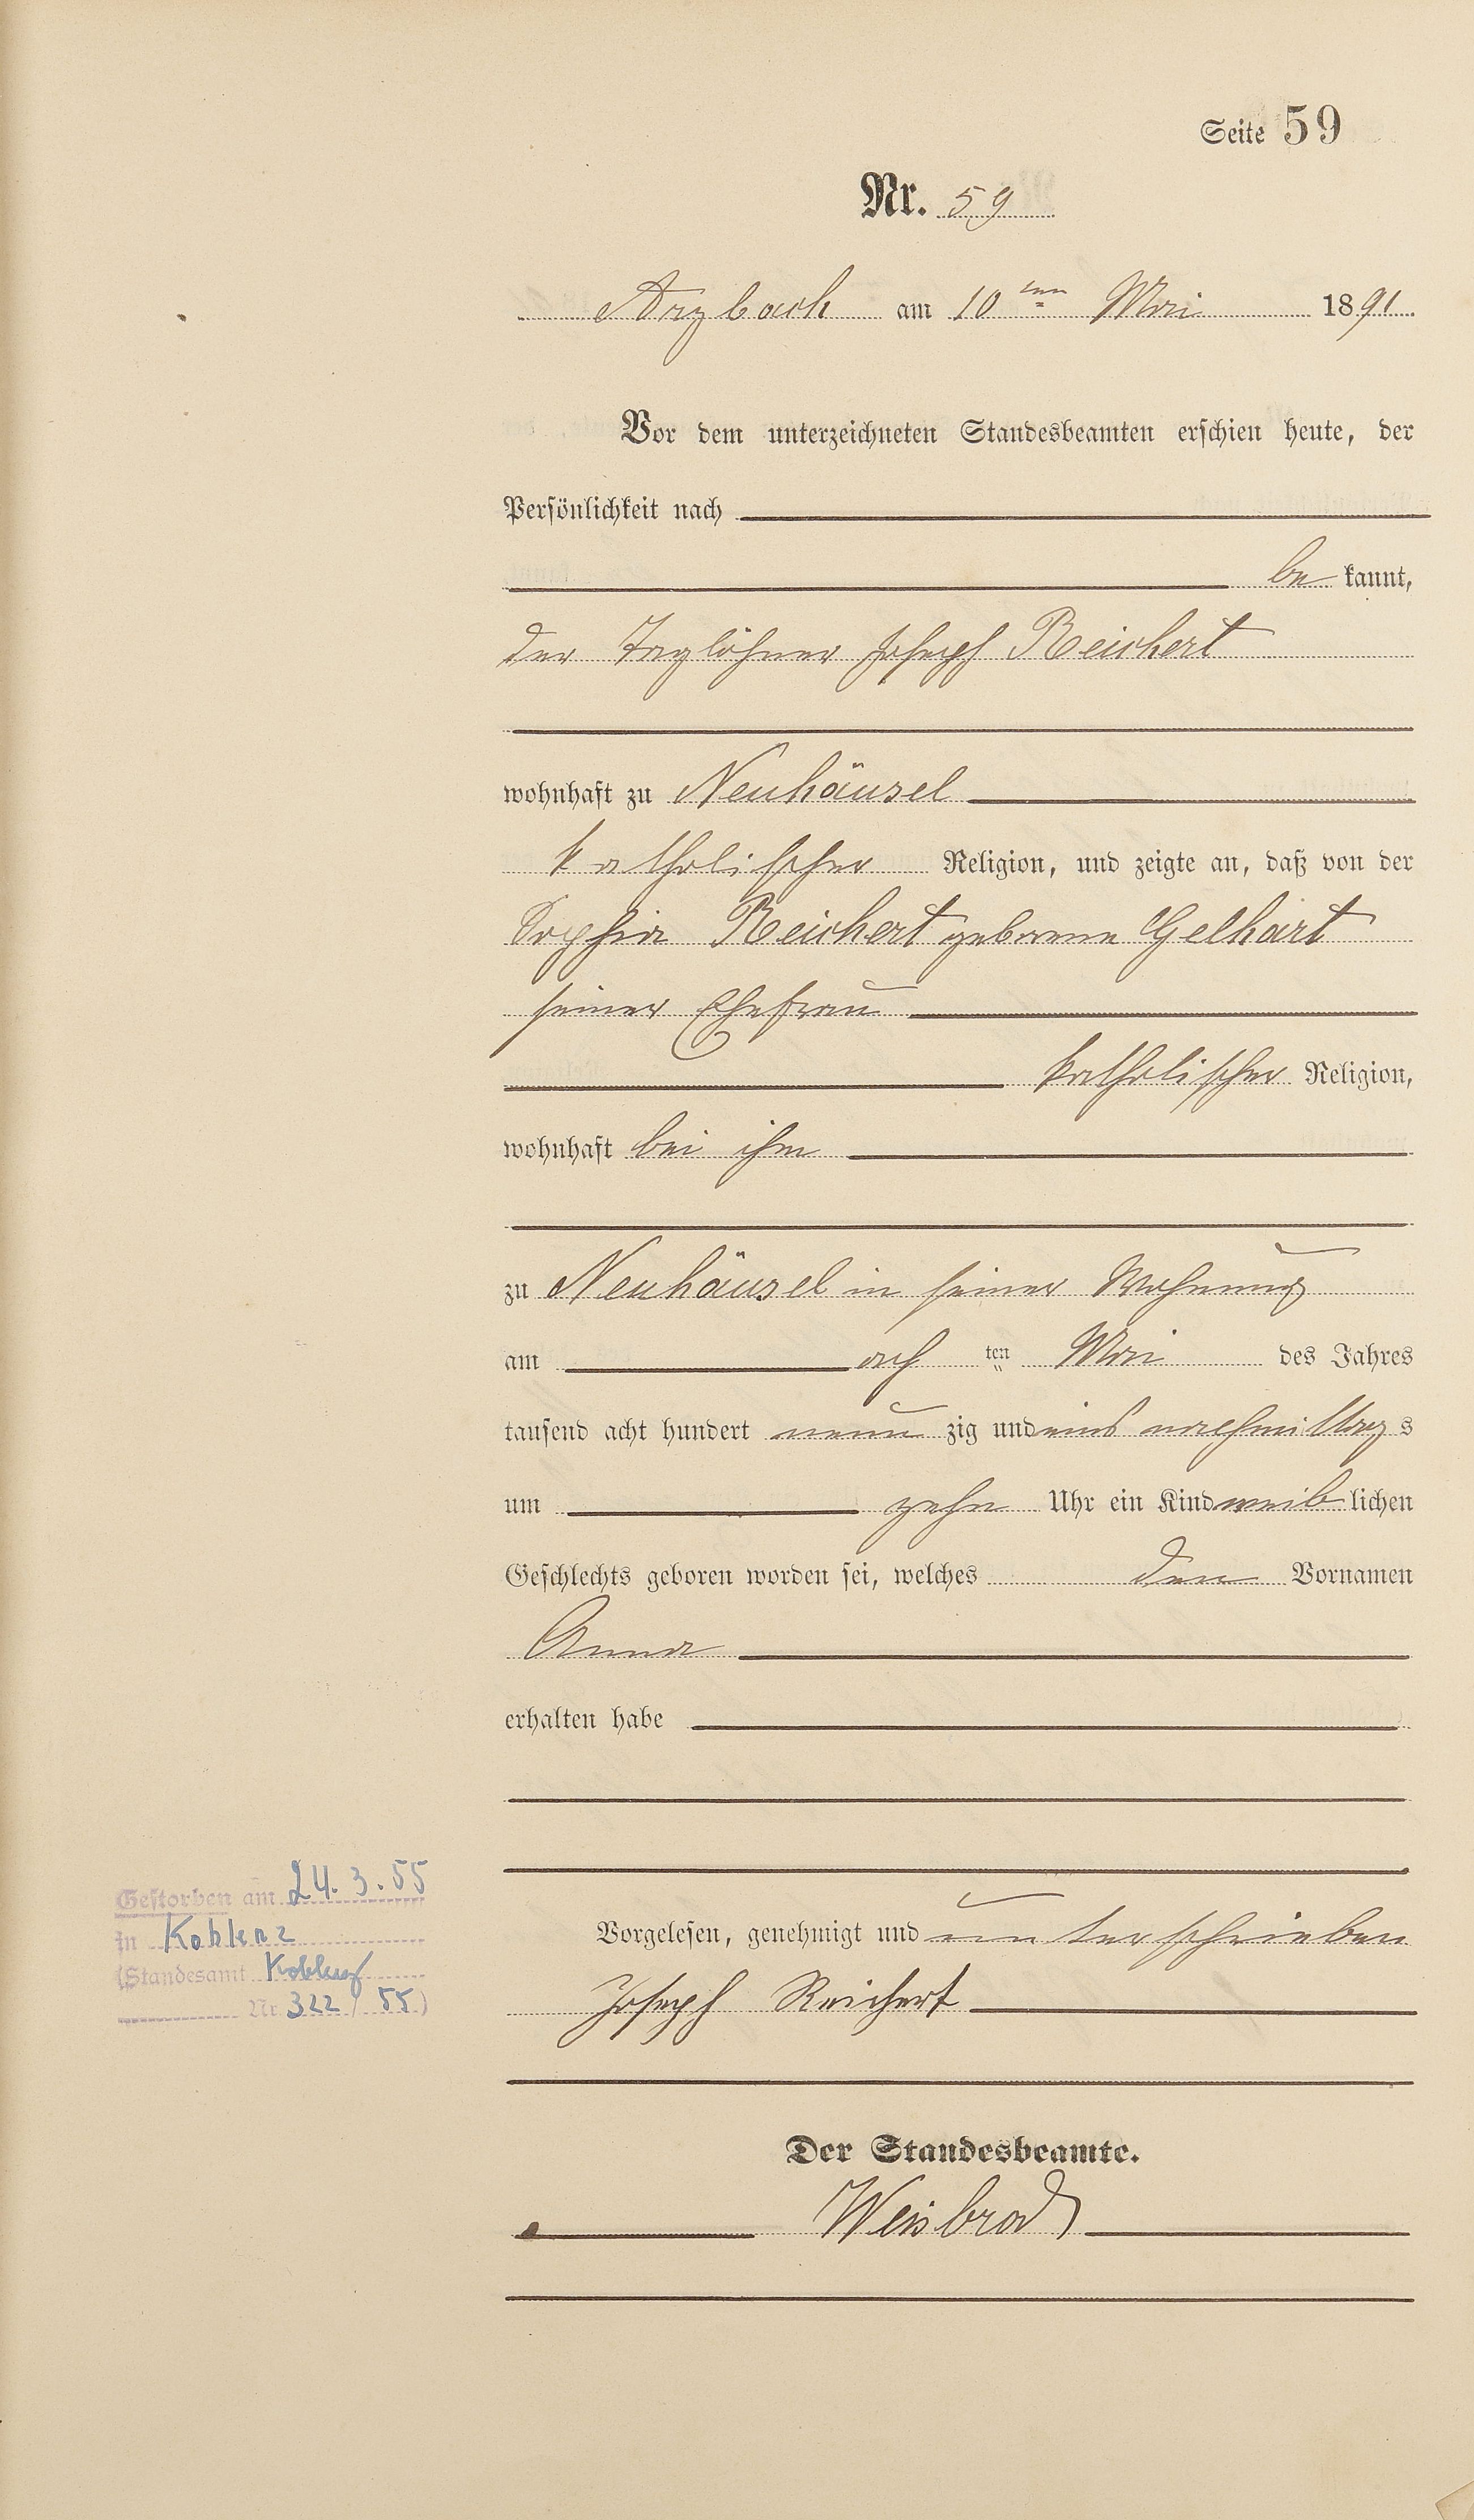 Seite 59
Nr. 59
Arzbach am 10ten Mai 1891
Vor dem unterzeichneten Standesbeamten erschien heute, der
Persönlichkeit nach
be kannt,
der Taglöhner Joseph Reichert
wohnhaft zu Neuhäusel
katholischer Religion, und zeigte an, daß von der
Sophia Reichert geborene Gelhart
seiner Ehefrau
katholischer Religion,
wohnhaft bei ihm
zu Neuhäusel in seiner Wohnung
am ach ten Mai des Jahres
tausend acht hundert neun zig und eins nachmittag s
um zehn Uhr ein Kind weib lichen
Geschlechts geboren worden sei, welches den Vornamen
Anna
erhalten habe
Gestorben am 24.3.55
in Koblenz
(Standesamt Koblenz
Nr. 322/55.)
Vorgelesen, genehmigt und unterschrieben
Joseph Reichert
Der Standesbeamte.
Weisbrod